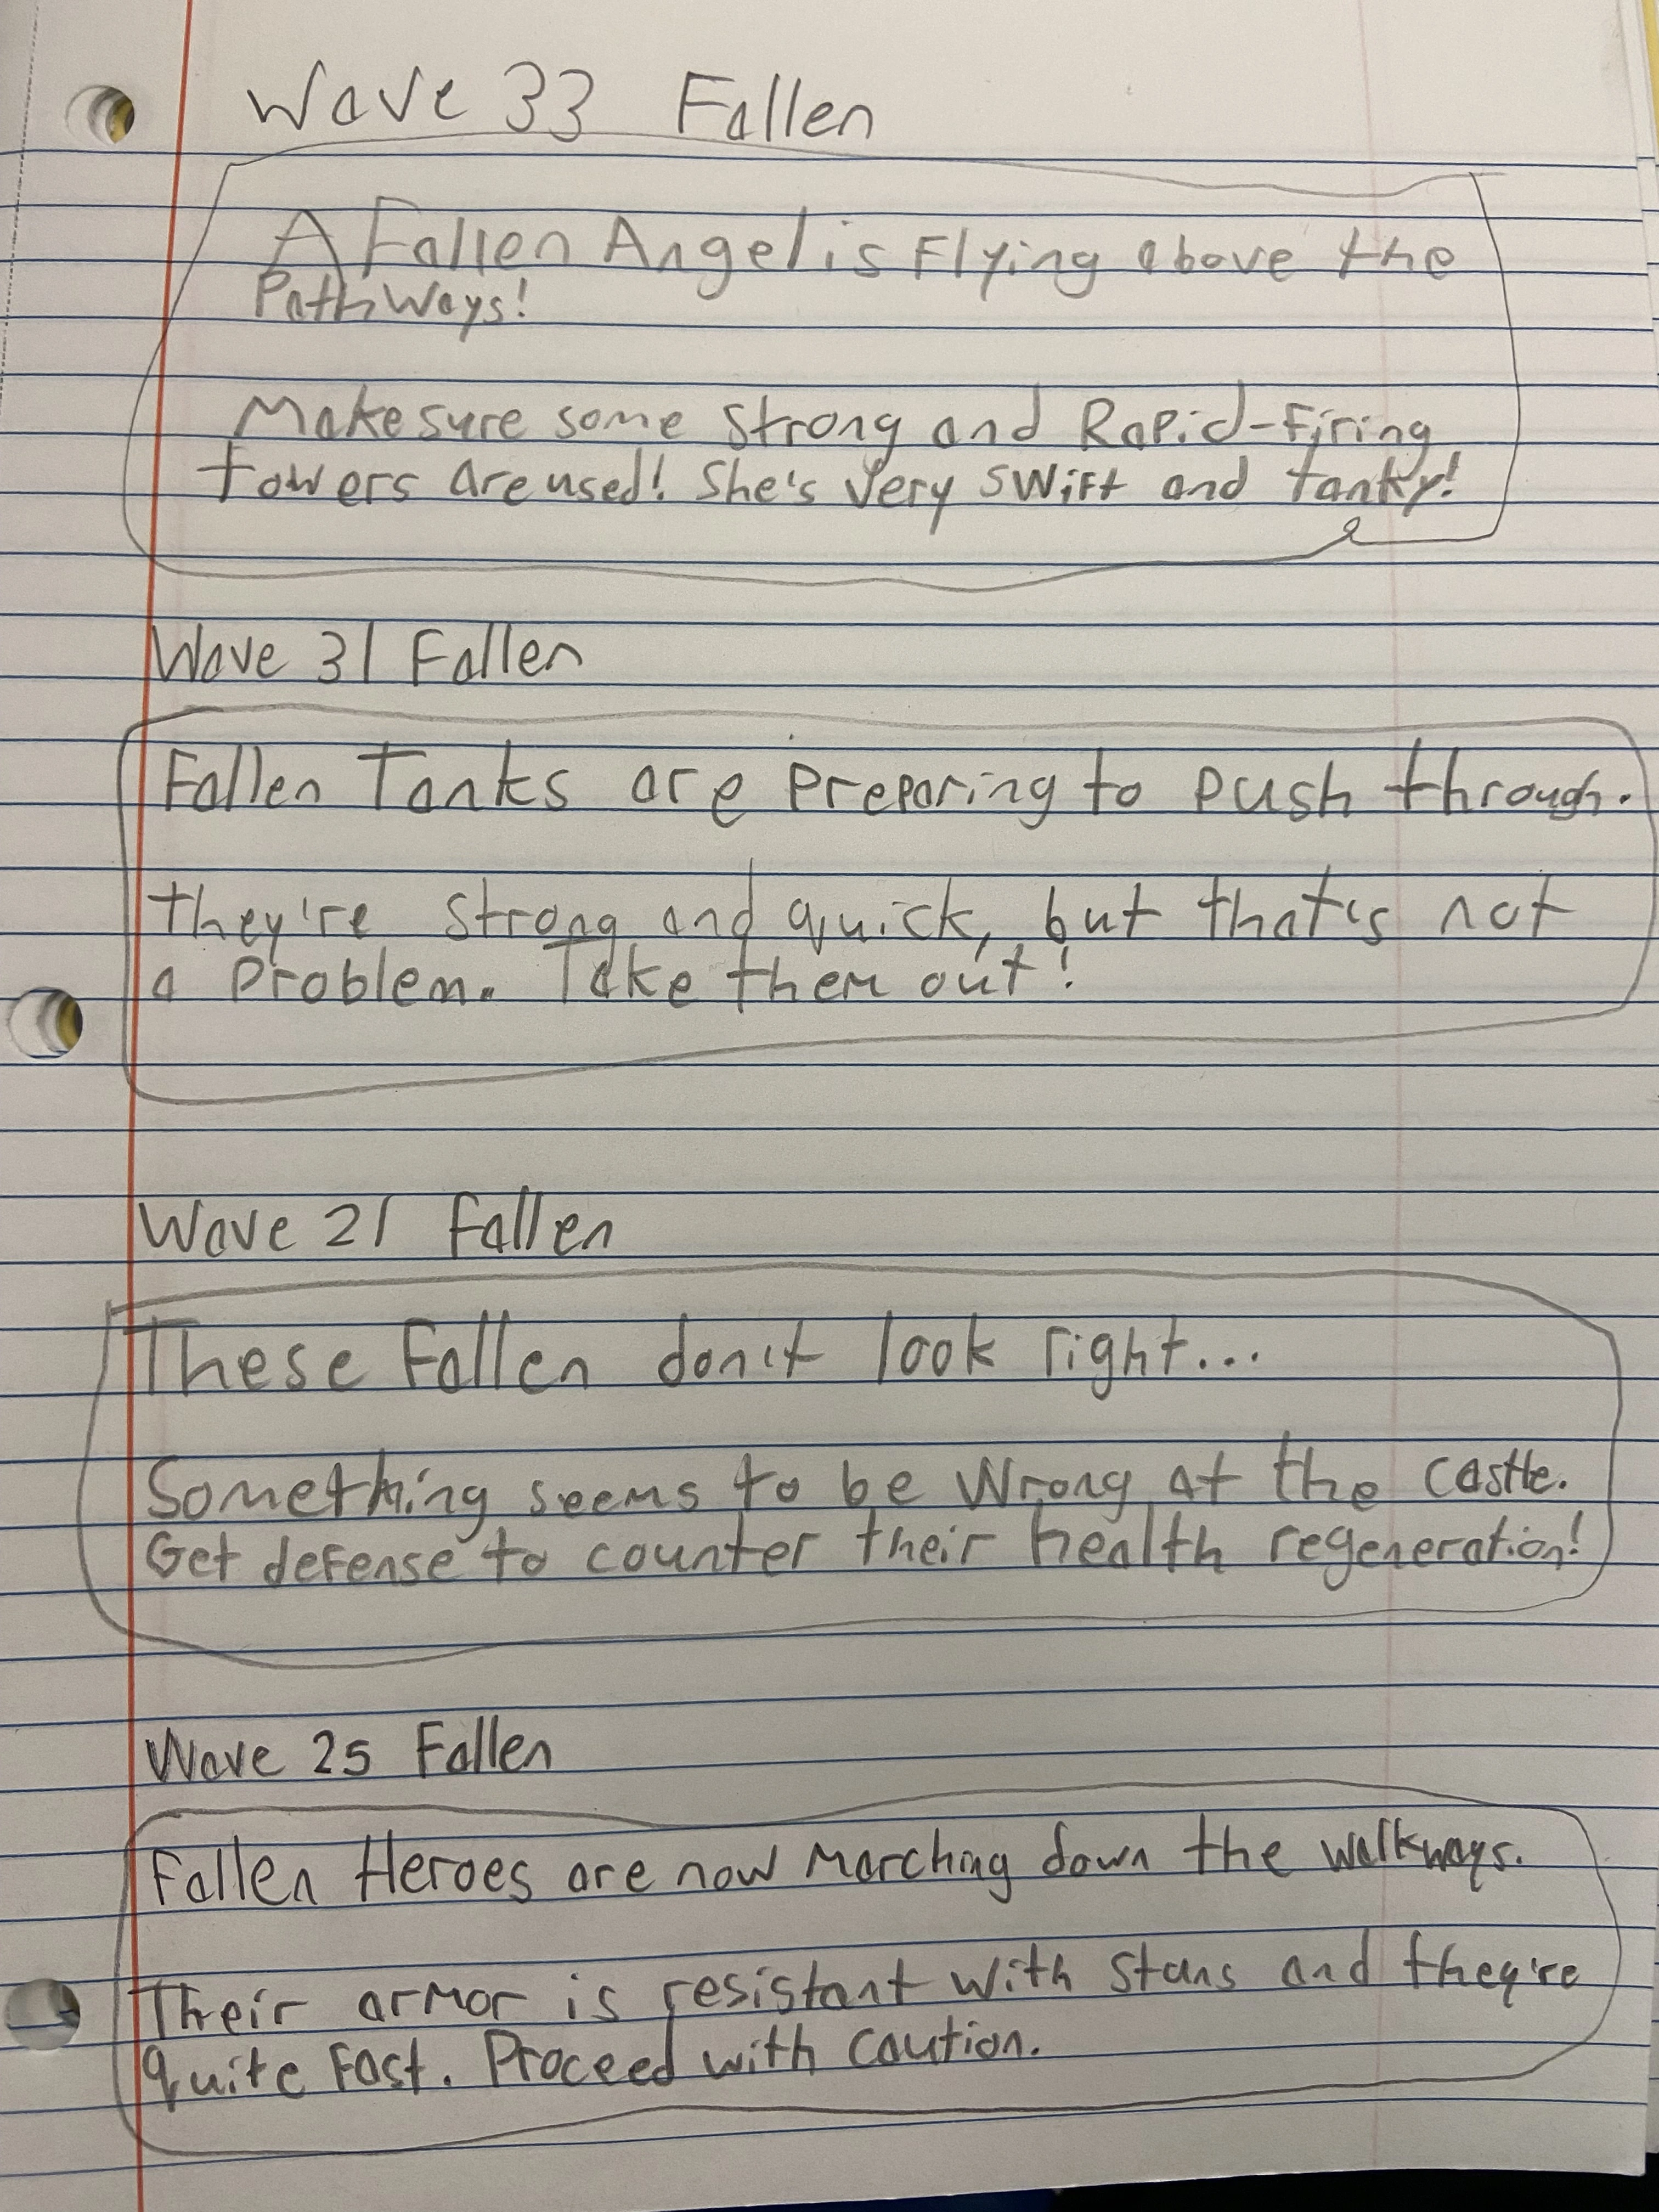 Wave 33 Fallen
A Fallen Angel is Flying above the
PathWays!
Make sure some strong and Rapid-Firing
towers are used! She's very swift and tanky!
Wave 31 Fallen
Fallen Tanks are preparing to push through.
they're strong and quick, but that's not
a problem. Take them out!
Wave 21 Fallen
These Fallen don't look right...
Something seems to be wrong at the castle.
Get defense to counter their health regeneration!
Wave 25 Fallen
Fallen Heroes are now marching down the walkways.
Their armor is resistant with stuns and they're
quite fast. Proceed with caution.